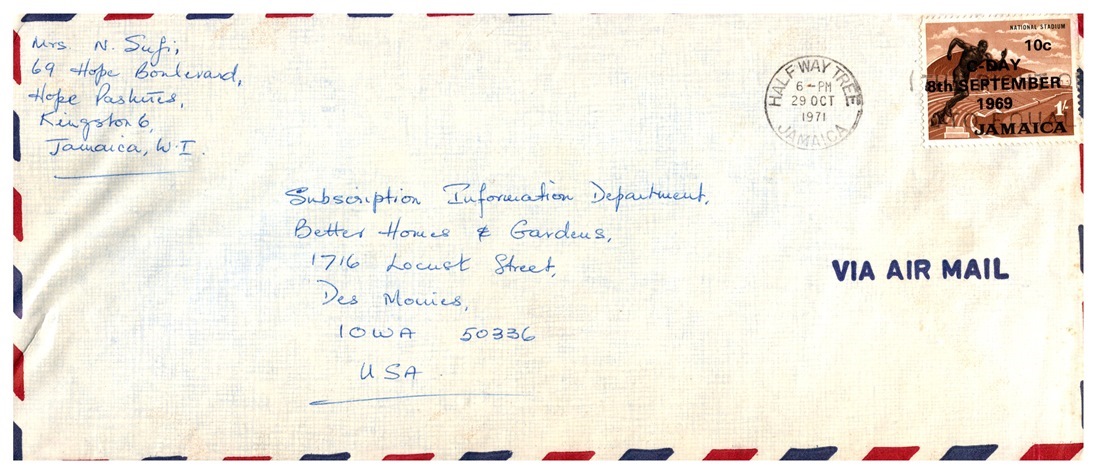 Mrs. N. Sufi,
69 Hope Boulevard,
Hope Pastures,
Kingston 6,
Jamaica, W.I.
HALF WAY TREE
6-PM
29 OCT
1971
JAMAICA
NATIONAL STADIUM
10c
C-DAY
8th SEPTEMBER
1969
1/-
JAMAICA
Subscription Information Department,
Better Homes & Gardens,
1716 Locust Street,
Des Monies,
IOWA 50336
USA.
VIA AIR MAIL